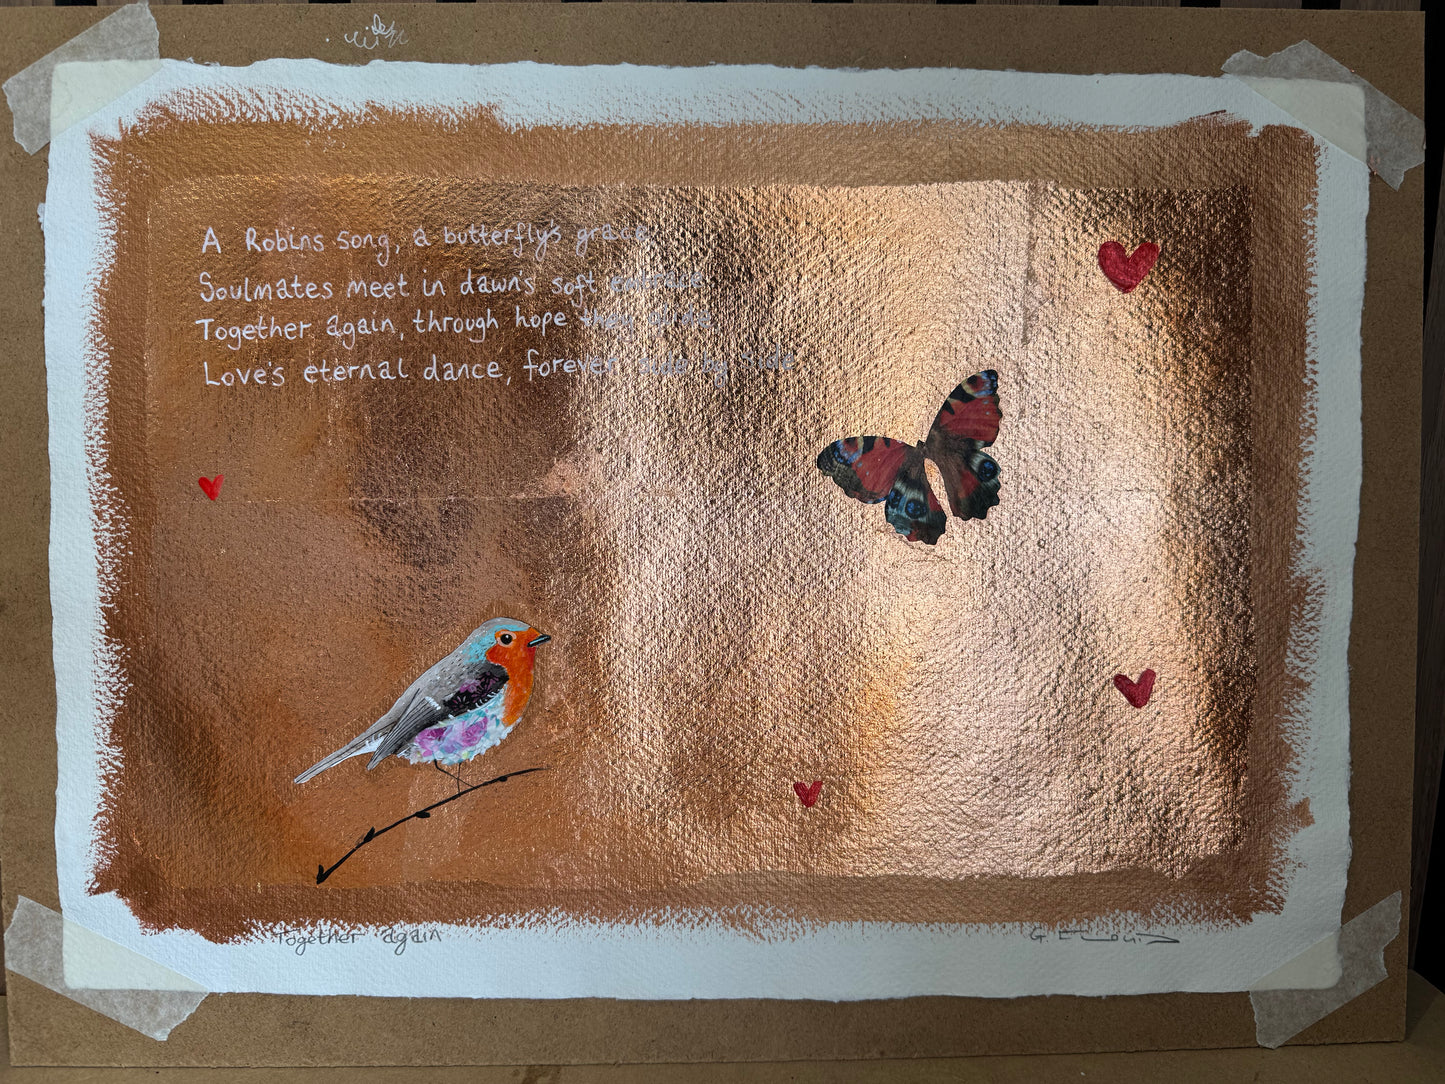 A Robins song, a butterfly's grace
Soulmates meet in dawn's soft embrace
Together again, through hope they
Love's eternal dance, forever side by side
Together again
G.